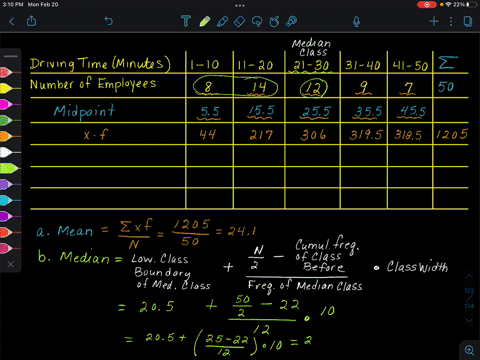 3:10 PM Mon Feb 20
22%
Median
Class
Driving Time (Minutes) 1-10 11-20 21-30 31-40 41-50 Σ
Number of Employees 8 14 12 9 7 50
Midpoint 5.5 15.5 25.5 35.5 45.5
x·f 44 217 306 319.5 318.5 1205
a. Mean = Σxf/N = 1205/50 = 24.1
b. Median = Low. Class Boundary of Med. Class + (N/2 - Cumul. freq. of Class Before)/Freq. of Median Class • Class Width
= 20.5 + (50/2 - 22)/12 • 10
= 20.5 + (25-22/12) • 10 = 2